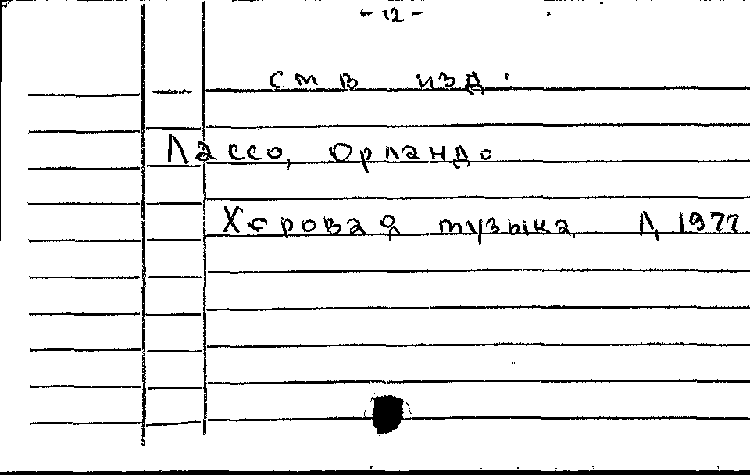 - 12 -
см в изд.
Лассо, Орландо
Хоровая музыка Л, 1977